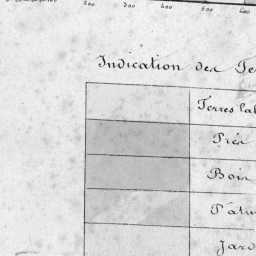 200 300 400 500 600
Indication des Te
Terres lab
Prés
Bois
Patu
Jard